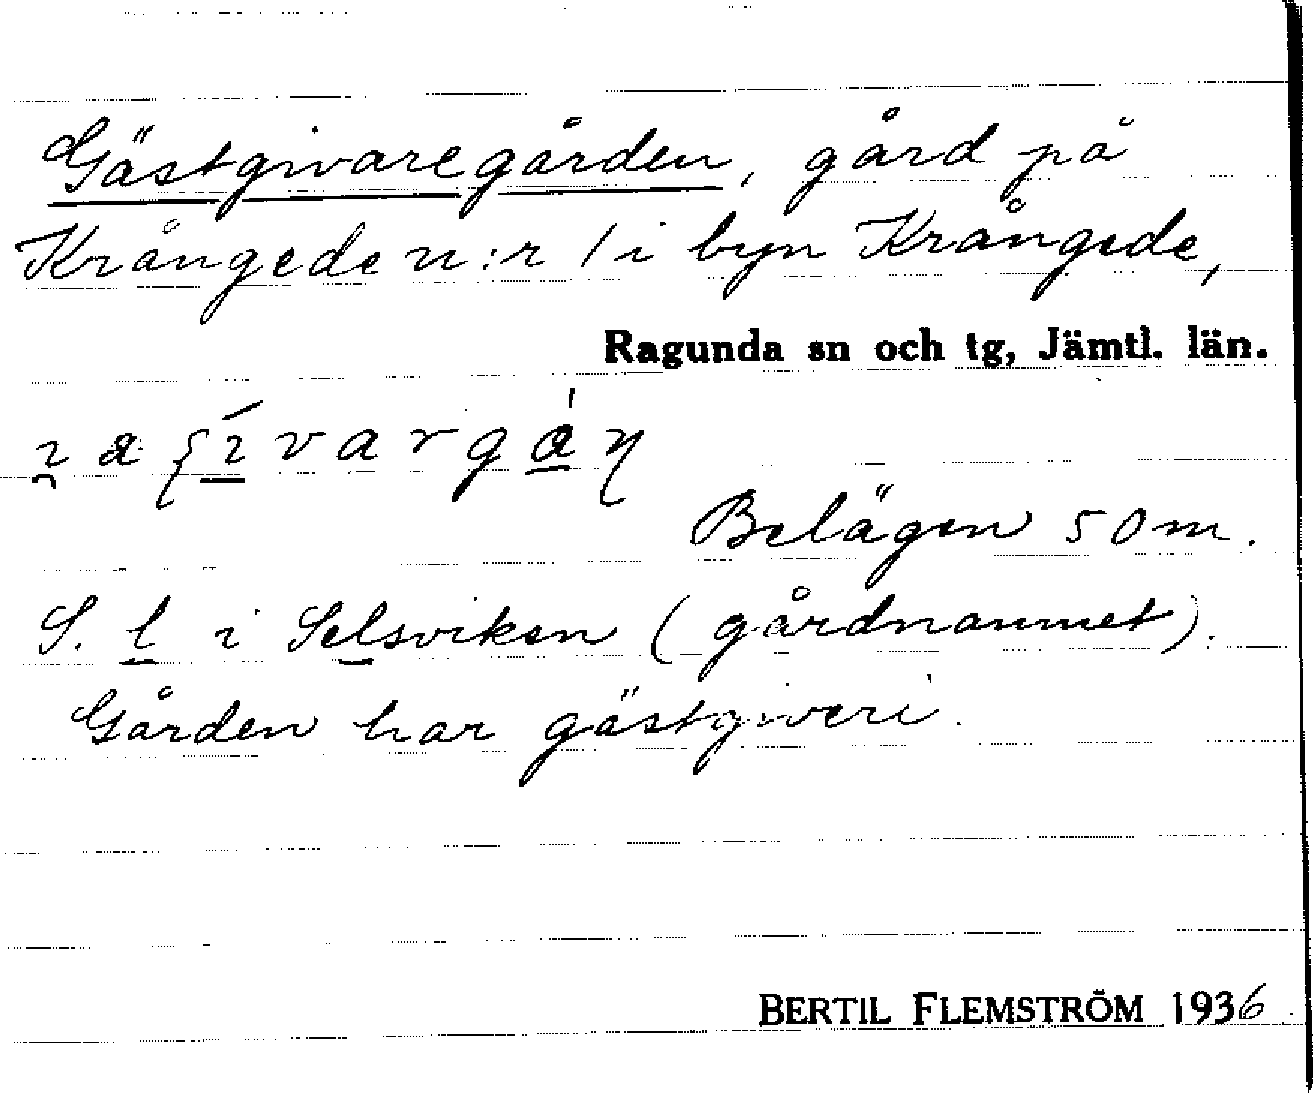 Gästgivaregården, gård på
Krångede n:r 1 i byn Krångede,
Ragunda sn och tg, Jämtl. län.
Belägen 50 m.
S. l i Selsviken (gårdnamnet).
Gården har gästgiveri.
BERTIL FLEMSTRÖM 1936